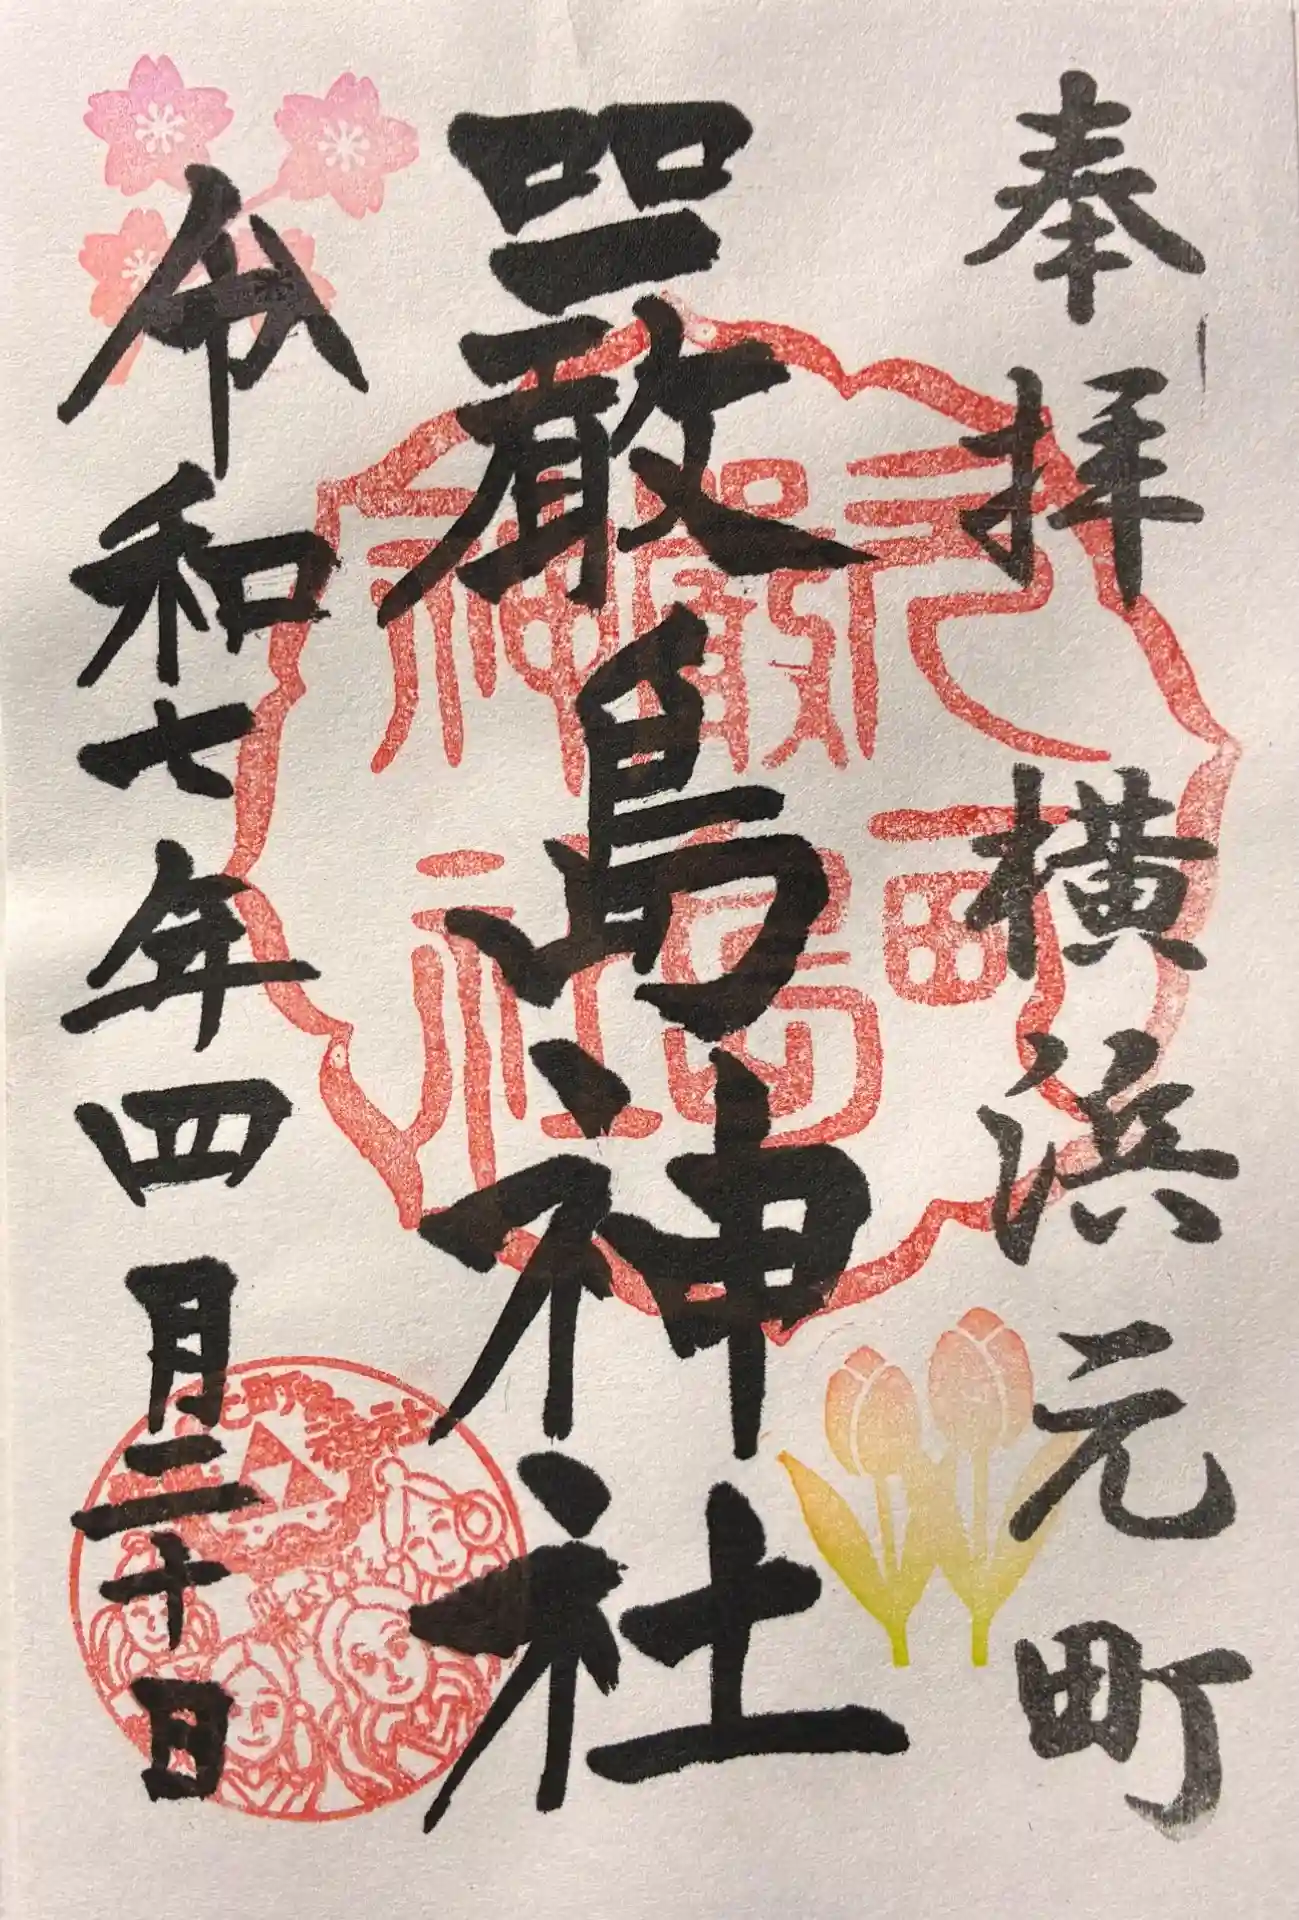 奉拝 横浜元町
嚴島神社
令和七年四月二十日
元町
嚴島
神社
元町嚴島神社